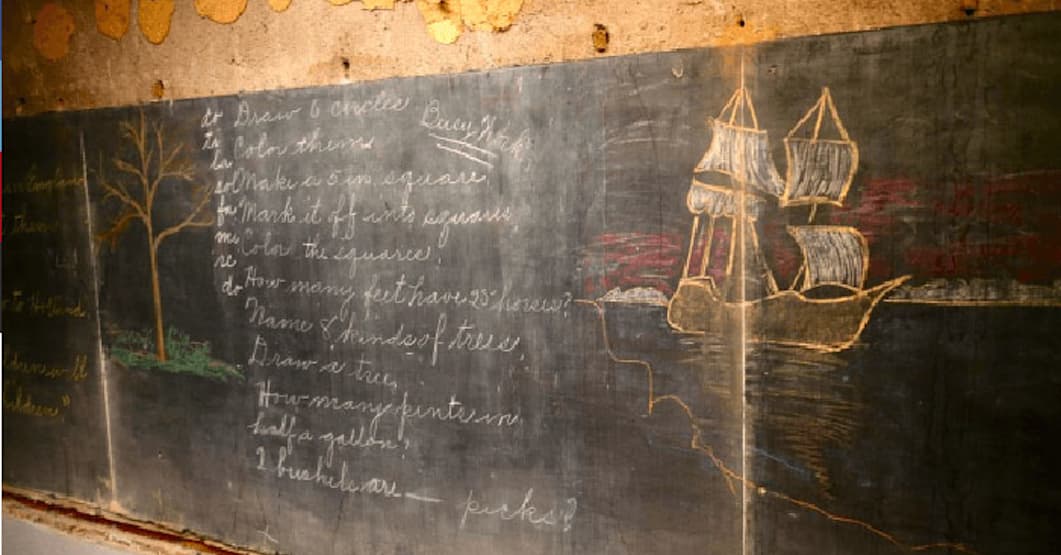 an England
t them
to Holland
Children will
Children"
do
ti
la
sol
fa
mi
re
do
Busy Work
Draw 6 circles
Color them
Make a 5 in. square.
Mark it off into squares
Color the squares.
How many feet have 25 horses?
Name 8 kinds of trees.
Draw a tree.
How many pints in
half a gallon?
2 bushels are — picks?